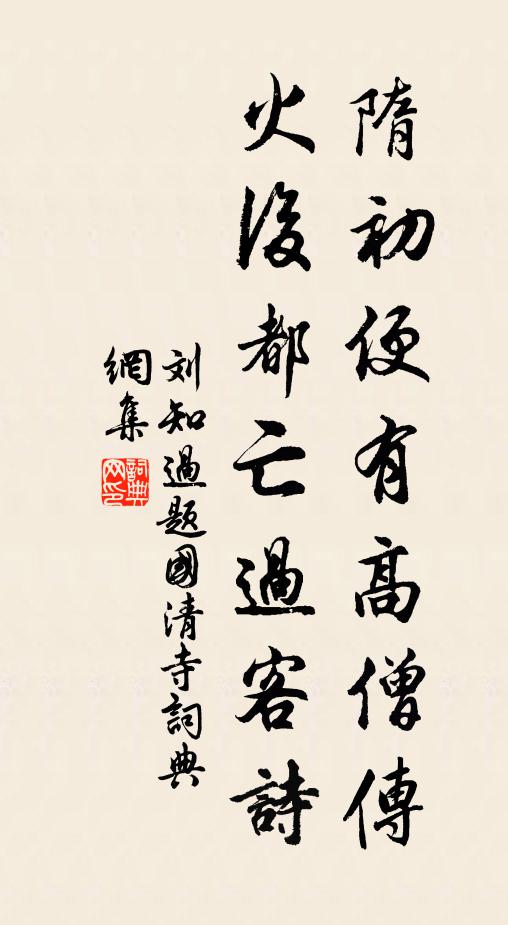 隋初便有高僧傳
火後都亡過客詩
刘知過題國清寺詞典
網集
詞典
网印